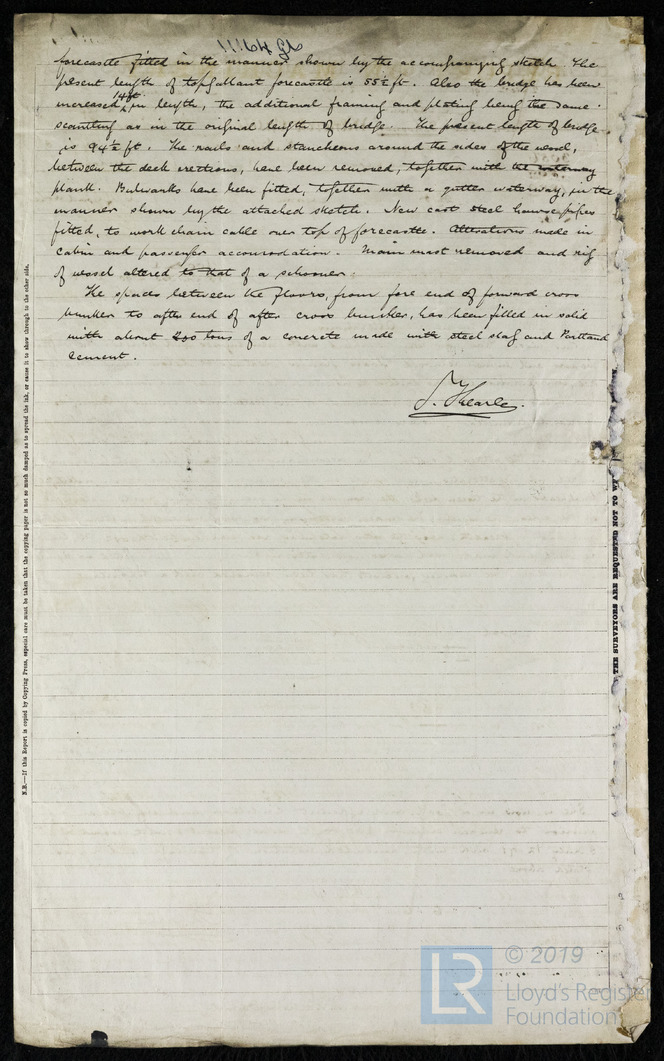 forecastle fitted in the manner shown by the accompanying sketch. The
present length of topgallant forecastle is 55½ ft. Also the bridge has been
increased 14 ft in length, the additional framing and plating being the same
scantling as in the original length of bridge. The present length of bridge
is 94½ ft. The rails and stancheons around the sides of the vessel,
between the deck erections, have been removed, together with the waterway
plank. Bulwarks have been fitted, together with a gutter waterway, in the
manner shown by the attached sketch. New cast steel hawse pipes
fitted, to work chain cable over top of forecastle. Alterations made in
cabin and passenger accomodation. Main mast removed and rig
of vessel altered to that of a schooner.
The spaces between the floors, from fore end of forward cross
bunker to after end of after cross bunker, has been filled in solid
with about 200 tons of a concrete made with steel slag and Portland
cement.
J. Hearle.
N.B.—If this Report is copied by Copying Press, especial care must be taken that the copying paper is not so much damped as to spread the ink, or cause it to show through to the other side.
THE SURVEYORS ARE REQUESTED NOT TO
LR
© 2019
Lloyd's Register
Foundation